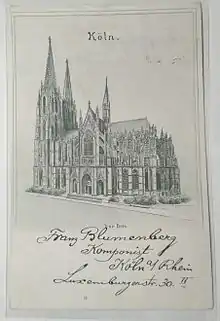 Köln.
Franz Blumenberg
Komponist
Köln a/Rhein
Luxemburgerstr. 30. II